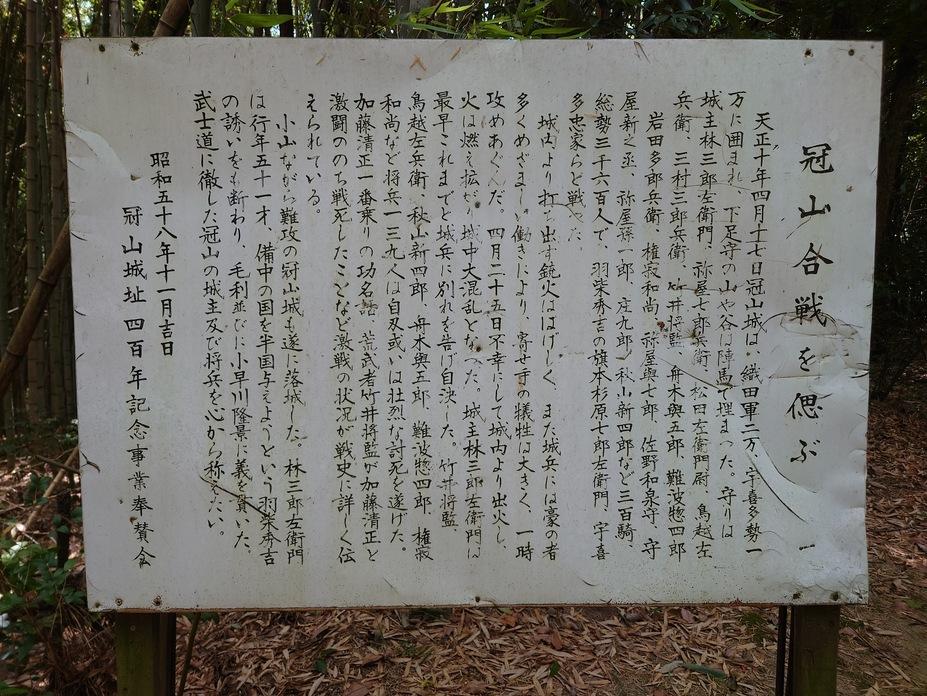 冠山合戦を偲ぶ
天正十年四月十七日冠山城は、織田軍二万、宇喜多勢一
万に囲まれ、下足守の山や谷は陣馬で埋まった。守りは
城主林三郎左衛門、祢屋七郎兵衛、松田左衛門尉、鳥越左
兵衛、三村三郎兵衛、竹井将監、舟木與五郎、難波惣四郎
岩田多郎兵衛、権寂和尚、祢屋與七郎、佐野和泉守、守
屋新之丞、祢屋孫一郎、庄九郎、秋山新四郎など三百騎
総勢三千六百人で、羽柴秀吉の旗本杉原七郎左衛門、宇喜
多忠家らと戦った。
城内より打ち出す銃火ははげしく、また城兵には豪の者
多くめざましい働きにより、寄せ手の犠牲は大きく、一時
攻めあぐんだ。四月二十五日不幸にして城内より出火し、
火は燃え拡がり城中大混乱となった。城主林三郎左衛門は
最早これまでと城兵に別れを告げ自決した。竹井将監
鳥越左兵衛、秋山新四郎、舟木與五郎、難波惣四郎、権寂
和尚など将兵一三九人は自刃或いは壮烈な討死を遂げた。
加藤清正一番乗りの功名話、荒武者竹井将監が加藤清正と
激闘ののち戦死したことなど激戦の状況が戦史に詳しく伝
えられている。
小山ながら難攻の冠山城も遂に落城した。林三郎左衛門
は行年五十一才、備中の国を半国与えようという羽柴秀吉
の誘いをも断わり、毛利並びに小早川隆景に義を貫いた、
武士道に徹した冠山の城主及び将兵を心から称えたい。
昭和五十八年十一月吉日
冠山城址四百年記念事業奉賛会